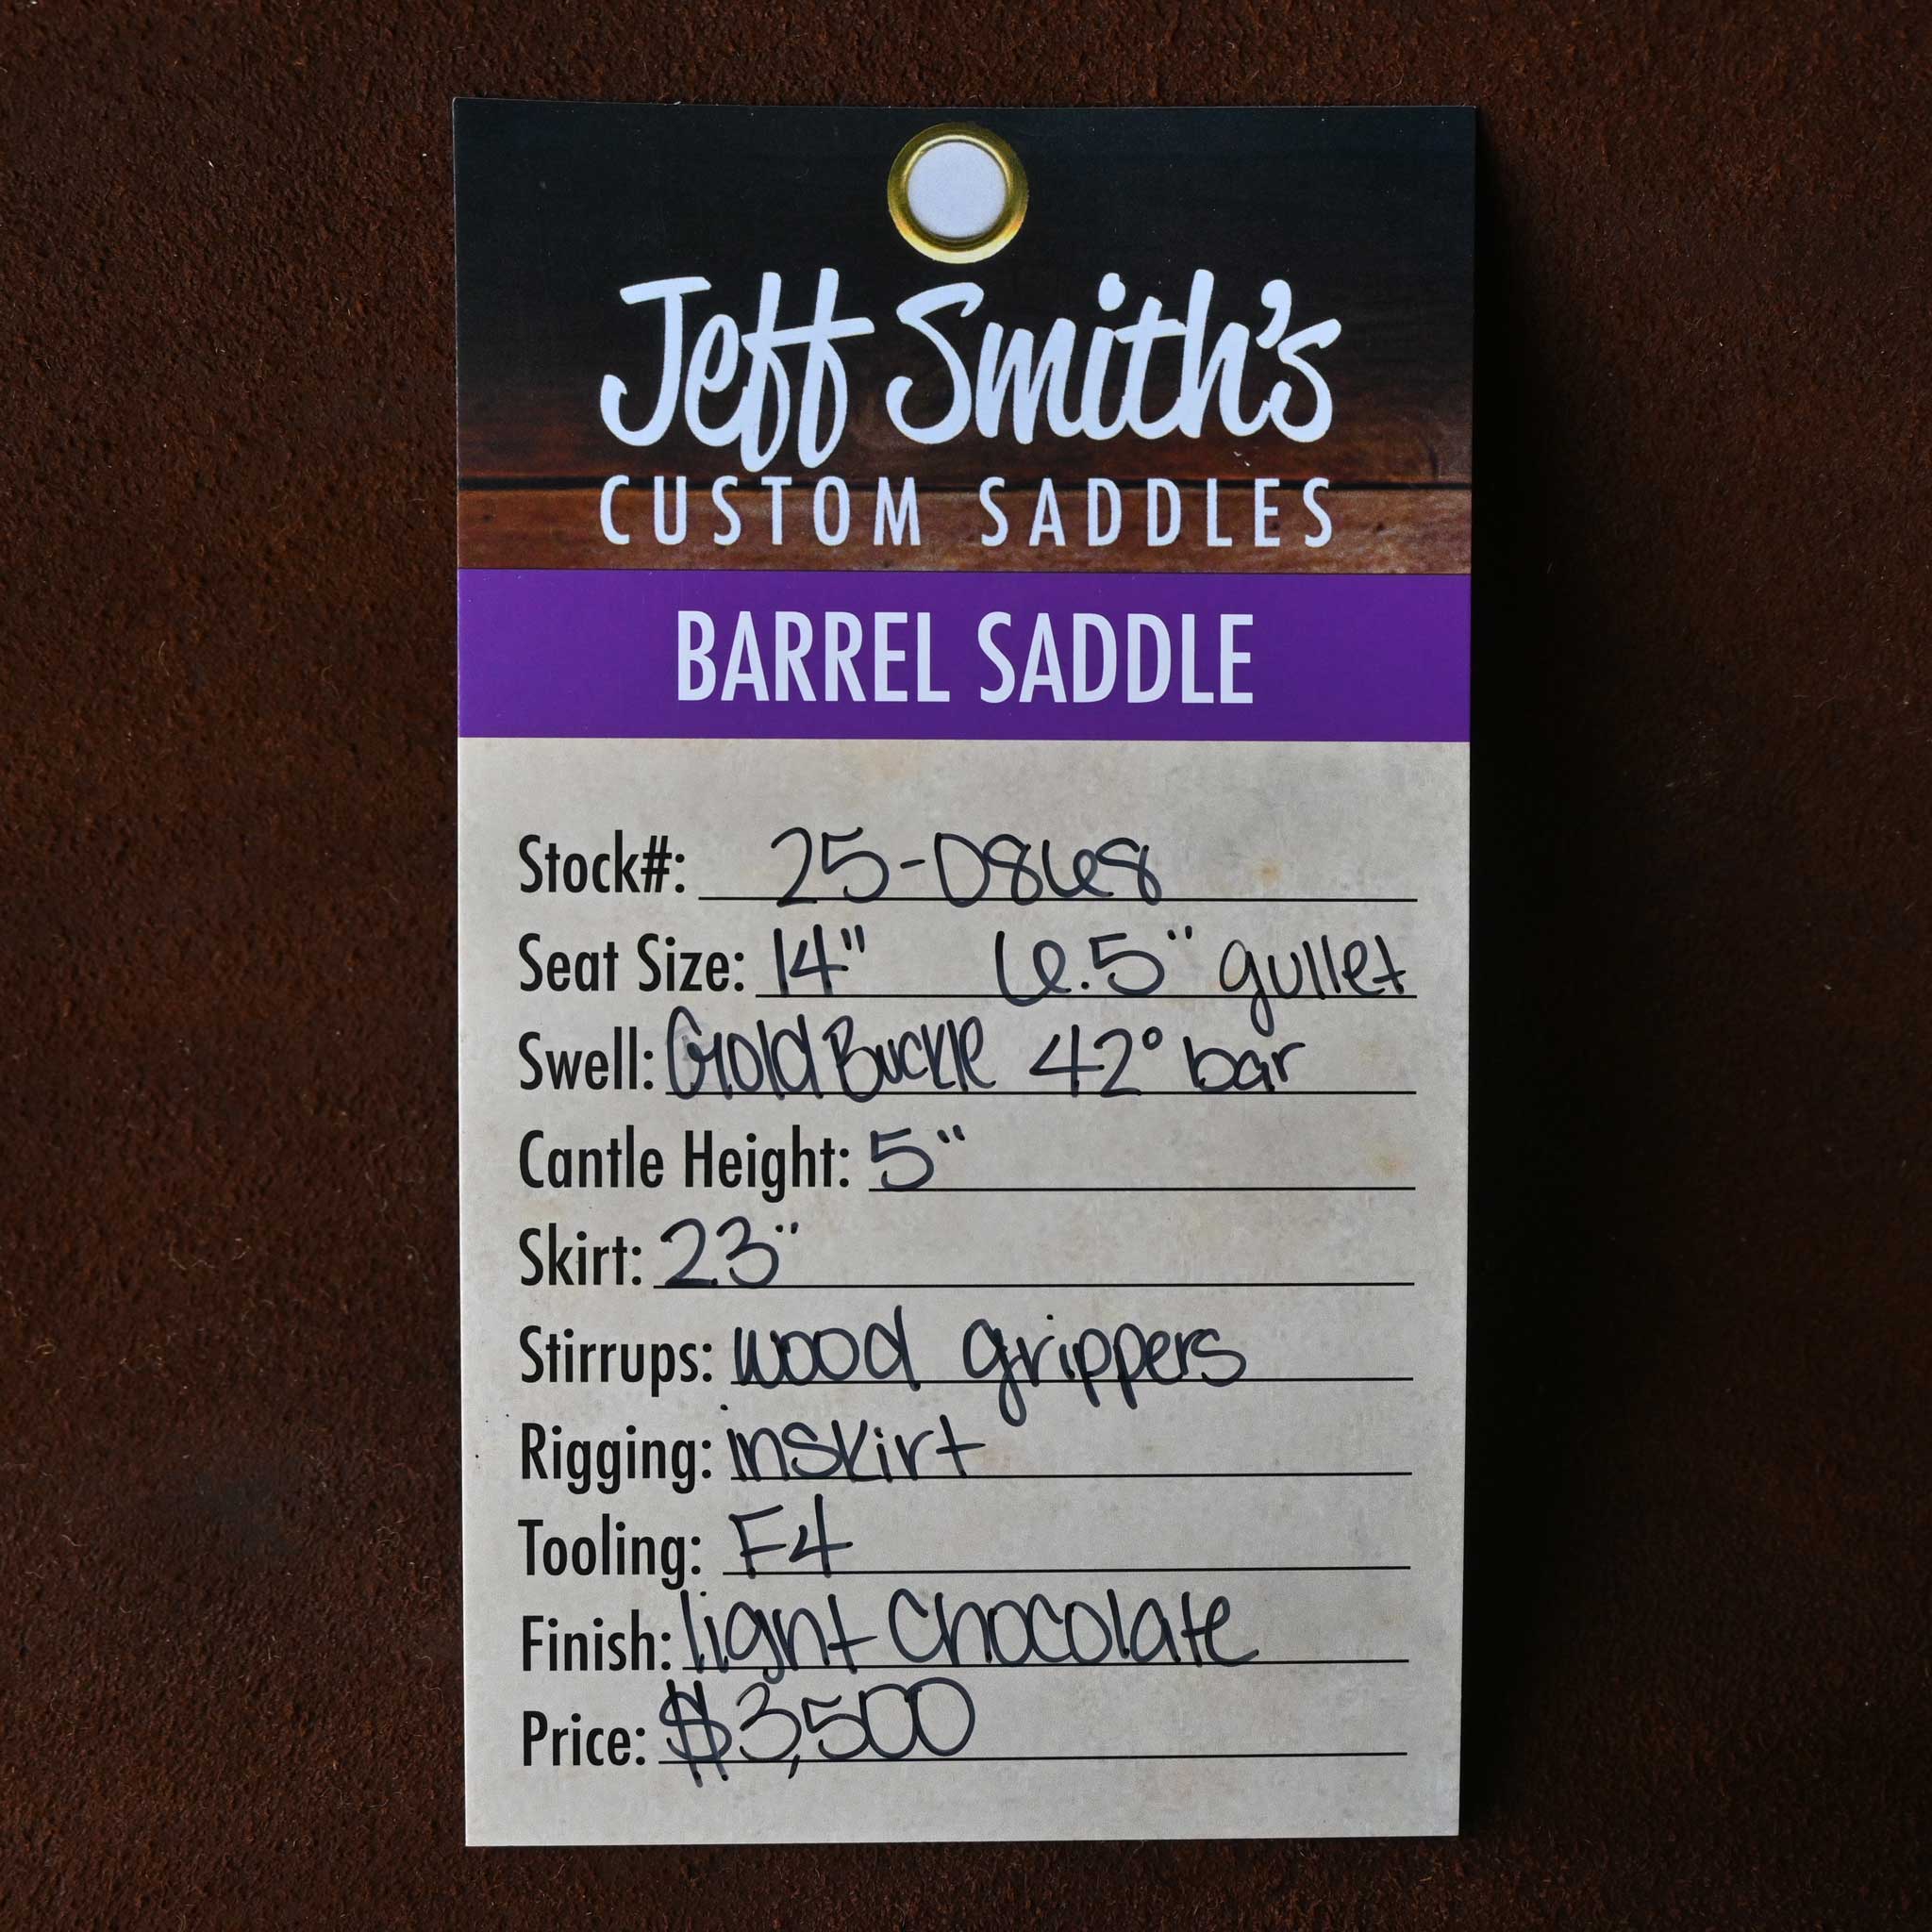 Jeff Smith's
CUSTOM SADDLES
BARREL SADDLE
Stock#: 25-0868
Seat Size: 14" 6.5" gullet
Swell: Gold Buckle 42° bar
Cantle Height: 5"
Skirt: 23"
Stirrups: wood grippers
Rigging: inskirt
Tooling: F4
Finish: light chocolate
Price: $3,500